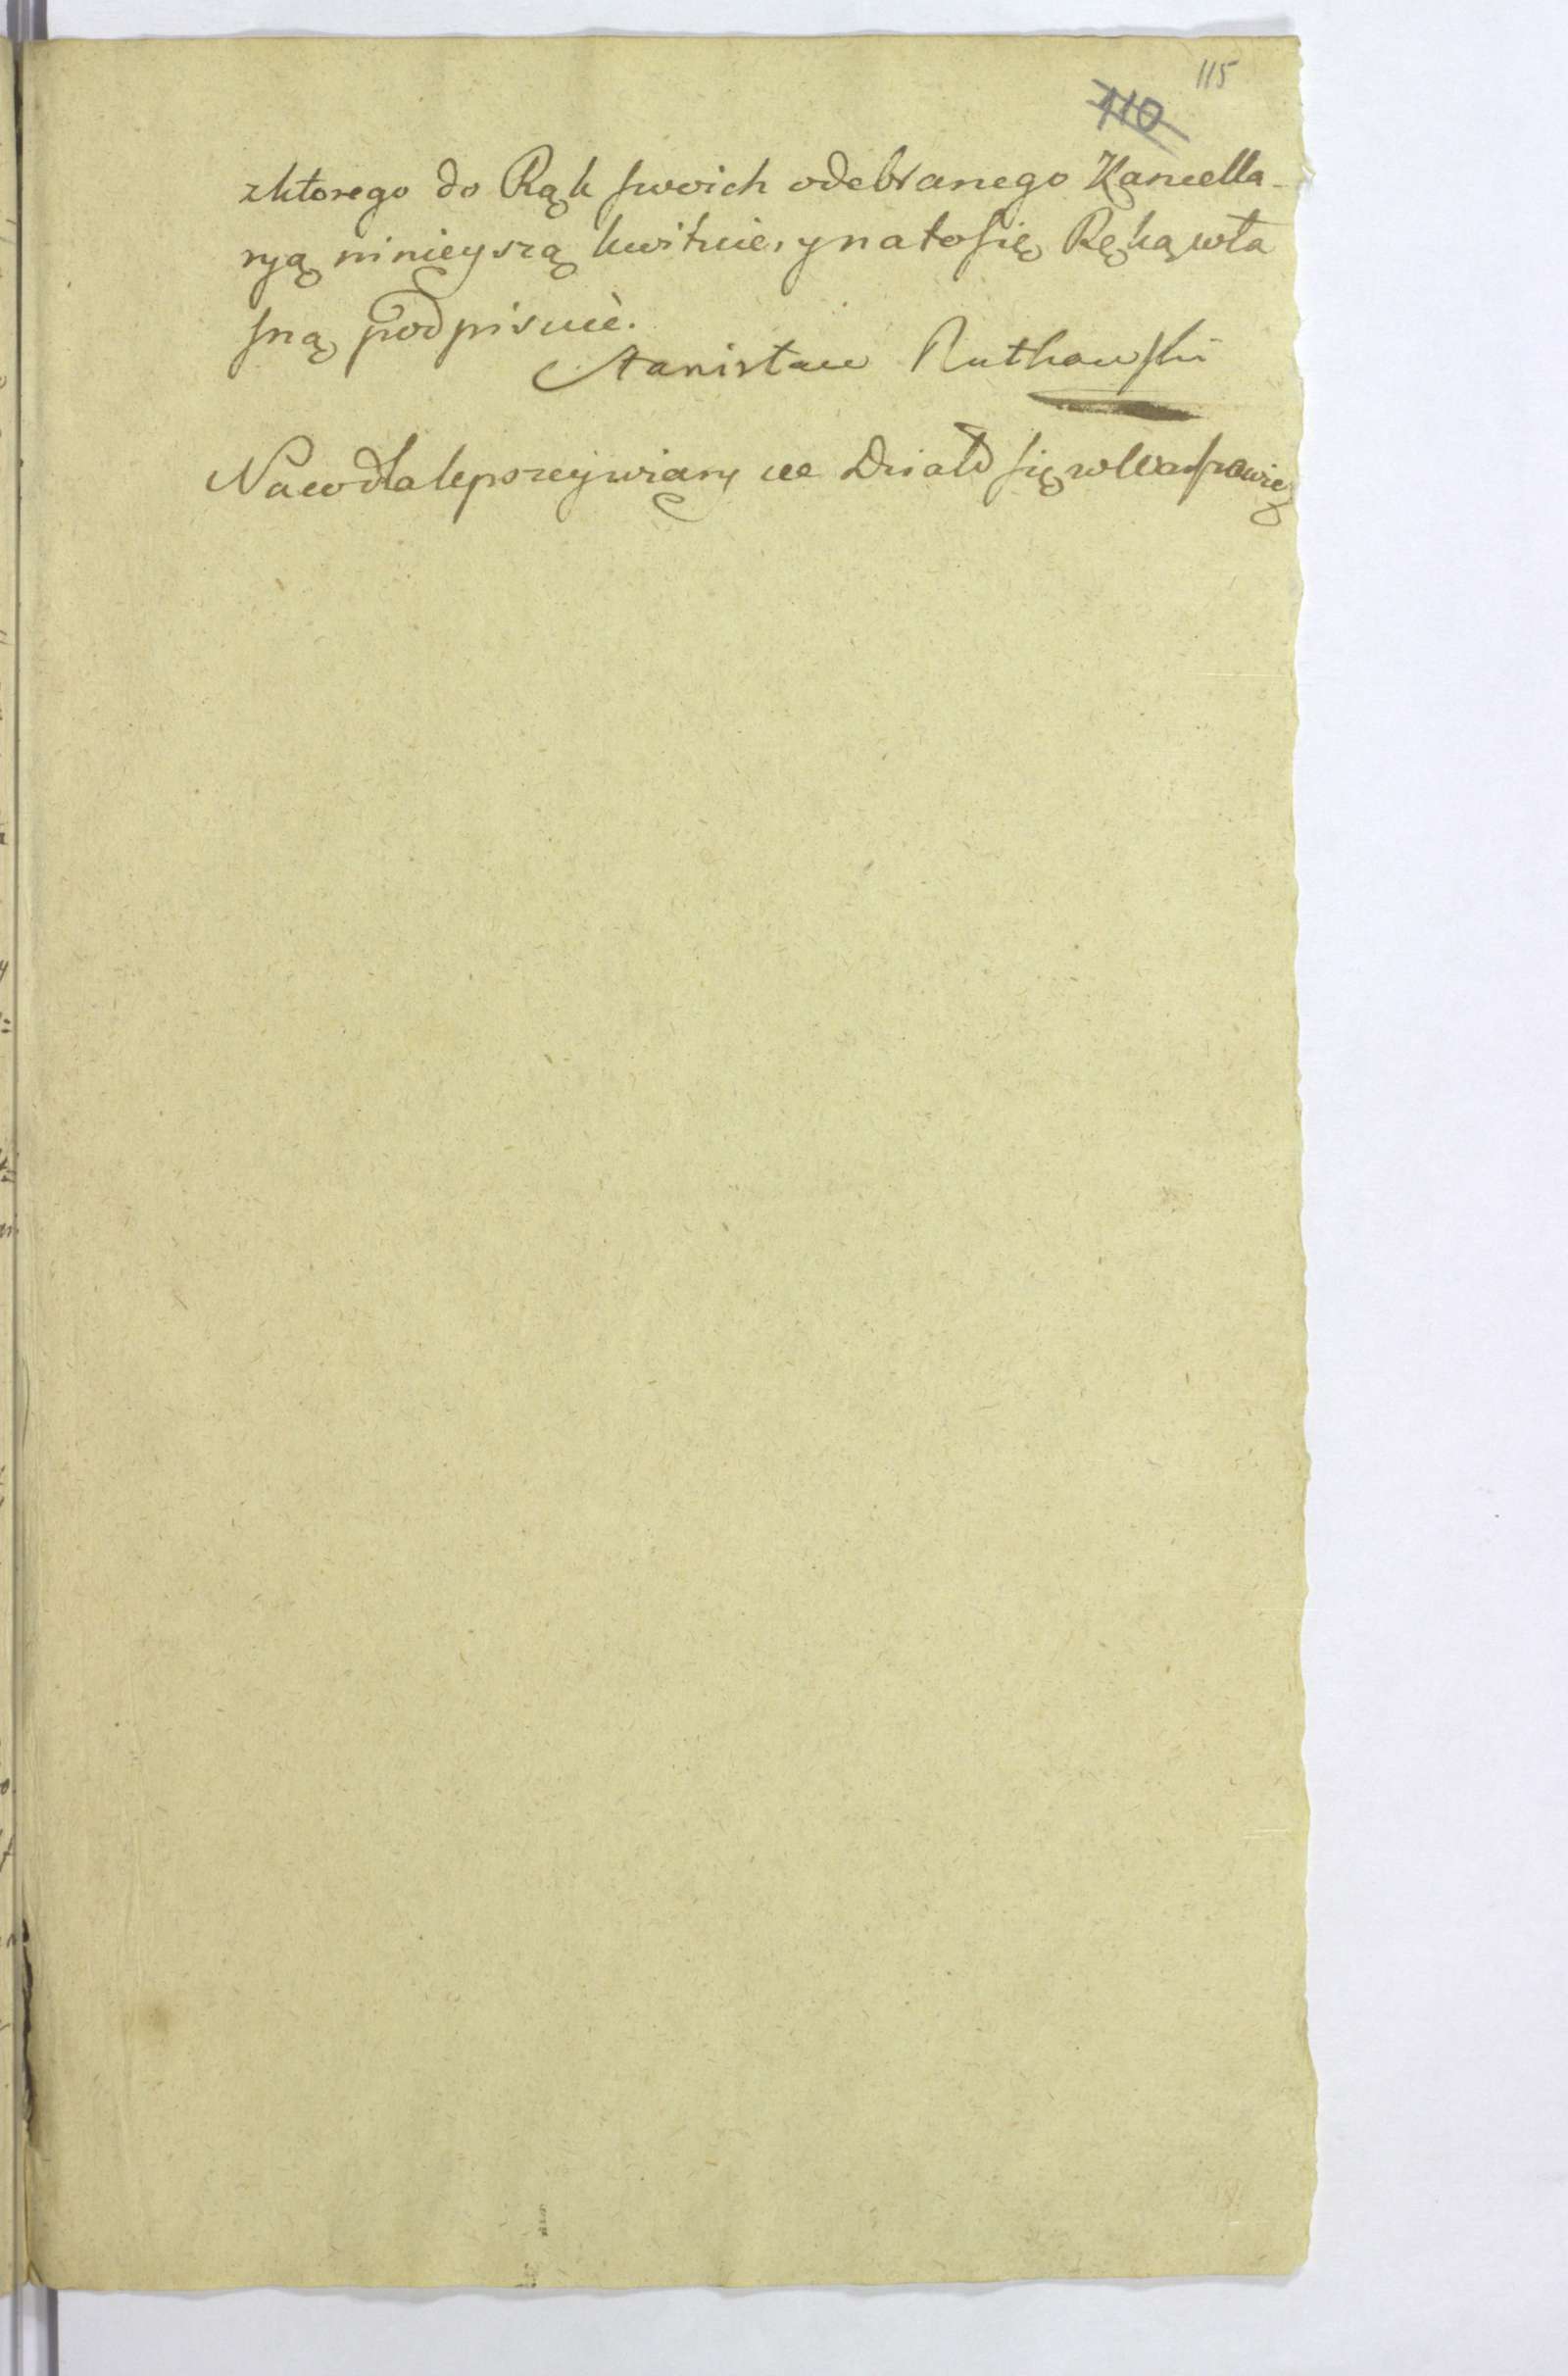 115
110
zktorego do Rąk swoich odebranego Kancella-
ryą ninięyszą kwituie, y na to się Ręką wła
sną podpisuiè.
Stanisław Rutkowski
Naco dla lepszey wiary ut Działo się w Warszawie